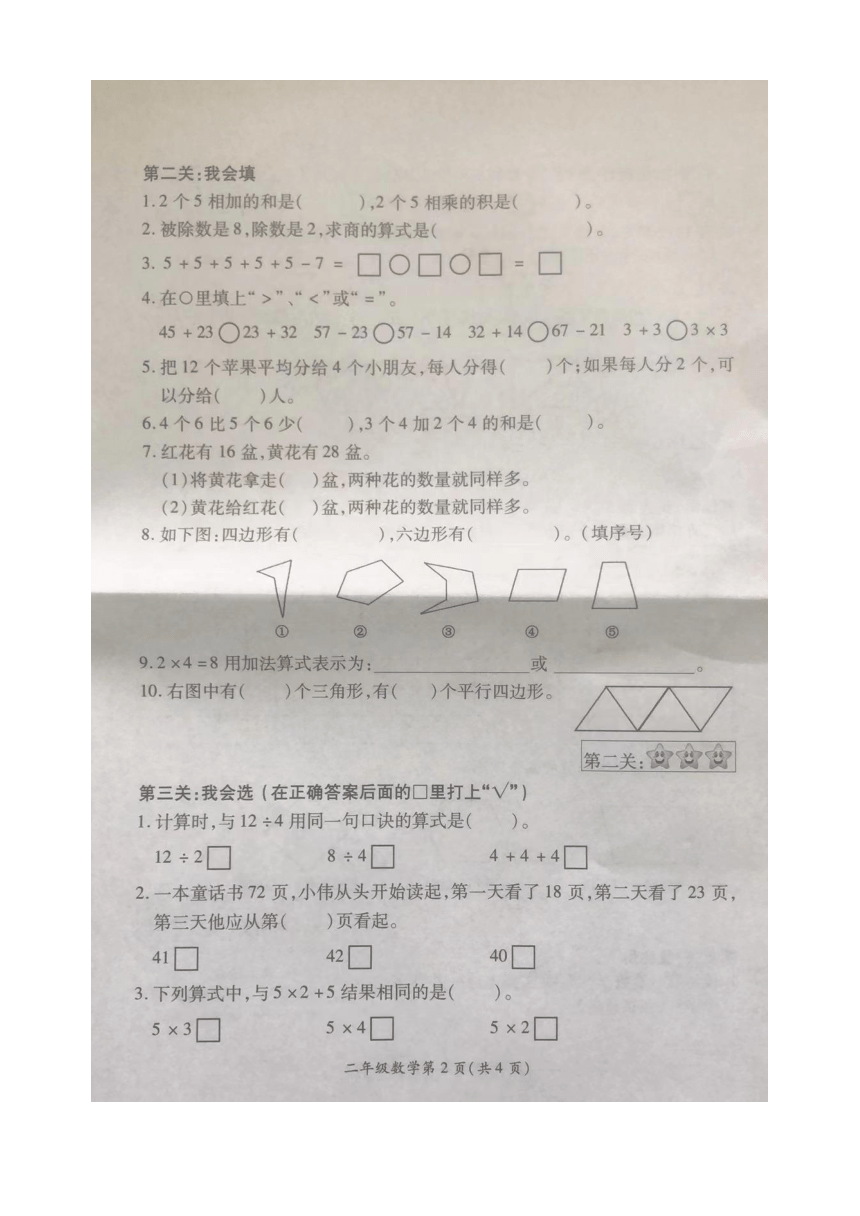 第二关:我会填
1. 2 个 5 相加的和是(　　),2 个 5 相乘的积是(　　)。
2. 被除数是 8,除数是 2,求商的算式是(　　)。
3. 5 + 5 + 5 + 5 + 5 - 7 = □○□○□ = □
4. 在○里填上“ > ”、“ < ”或“ = ”。
45 + 23○23 + 32　57 - 23○57 - 14　32 + 14○67 - 21　3 + 3○3 × 3
5. 把 12 个苹果平均分给 4 个小朋友,每人分得(　　)个;如果每人分 2 个,可
以分给(　　)人。
6. 4 个 6 比 5 个 6 少(　　),3 个 4 加 2 个 4 的和是(　　)。
7. 红花有 16 盆,黄花有 28 盆。
(1)将黄花拿走(　　)盆,两种花的数量就同样多。
(2)黄花给红花(　　)盆,两种花的数量就同样多。
8. 如下图:四边形有(　　),六边形有(　　)。(填序号)
①　②　③　④　⑤
9. 2 × 4 = 8 用加法算式表示为:__________或__________。
10. 右图中有(　　)个三角形,有(　　)个平行四边形。
第二关:
第三关:我会选(在正确答案后面的□里打上“√”)
1. 计算时,与 12 ÷ 4 用同一句口诀的算式是(　　)。
12 ÷ 2□　8 ÷ 4□　4 + 4 + 4□
2. 一本童话书 72 页,小伟从头开始读起,第一天看了 18 页,第二天看了 23 页,
第三天他应从第(　　)页看起。
41□　42□　40□
3. 下列算式中,与 5 × 2 + 5 结果相同的是(　　)。
5 × 3□　5 × 4□　5 × 2□
二年级数学第 2 页(共 4 页)